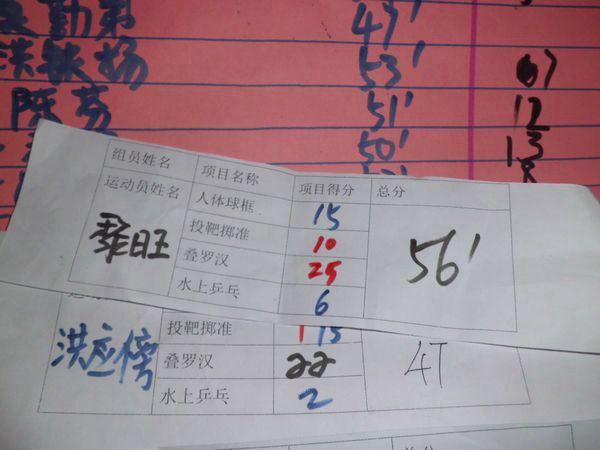 勤第 49'
洪铁扬 53' 67
陈芬 51' 12
50' 13
组员姓名 项目名称 项目得分 总分
运动员姓名 人体球框 15
投靶掷准 10
叠罗汉 25
水上乒乓 6
旺 56'
投靶掷准 15
洪应榜 叠罗汉 22 47
水上乒乓 2